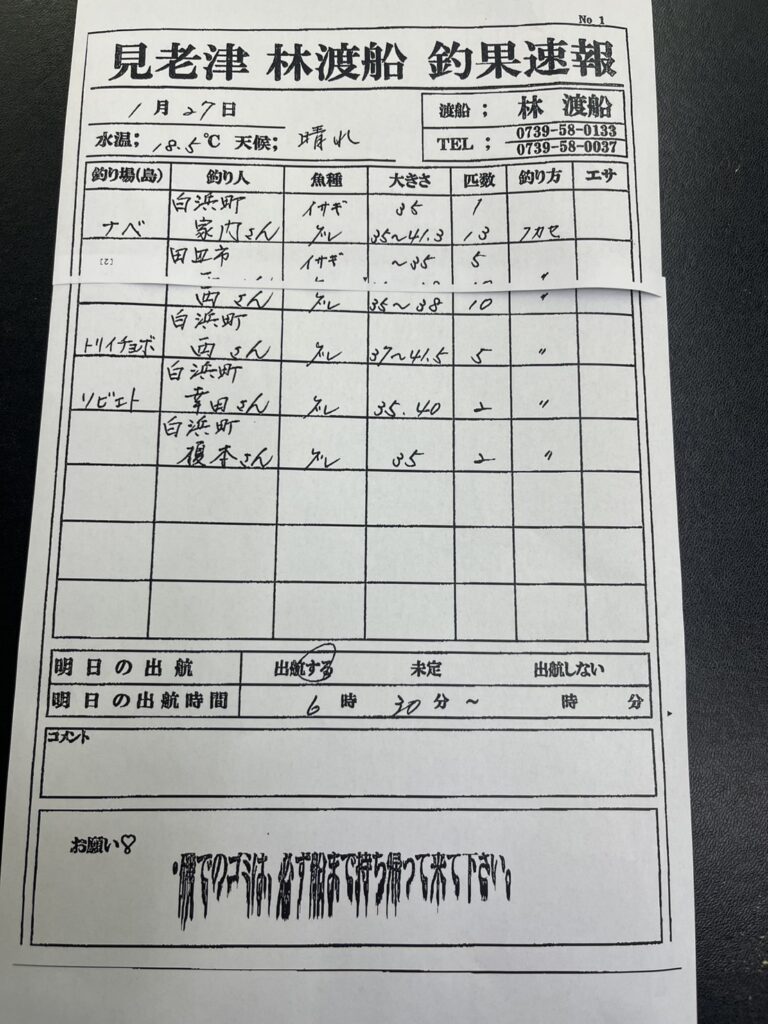 No 1
見老津 林渡船 釣果速報
1月27日
渡船； 林 渡船
水温； 18.5℃ 天候； 晴れ
TEL； 0739-58-0133
0739-58-0037
釣り場(島) 釣り人 魚種 大きさ 匹数 釣り方 エサ
白浜町 イサギ 35 1
ナベ 家内さん グレ 35〜41.3 13 フカセ
田辺市 イサギ 〜35 5
[2]
西さん グレ 35〜38 10 〃
白浜町
トリイチョボ 西さん グレ 37〜41.5 5 〃
白浜町
ソビエト 幸田さん グレ 35.40 2 〃
白浜町
榎本さん グレ 35 2 〃
明日の出航 出航する 未定 出航しない
明日の出航時間 6時 30分 〜 時 分
コメント
お願い♡
・磯でのゴミは、必ず船まで持ち帰って来て下さい。